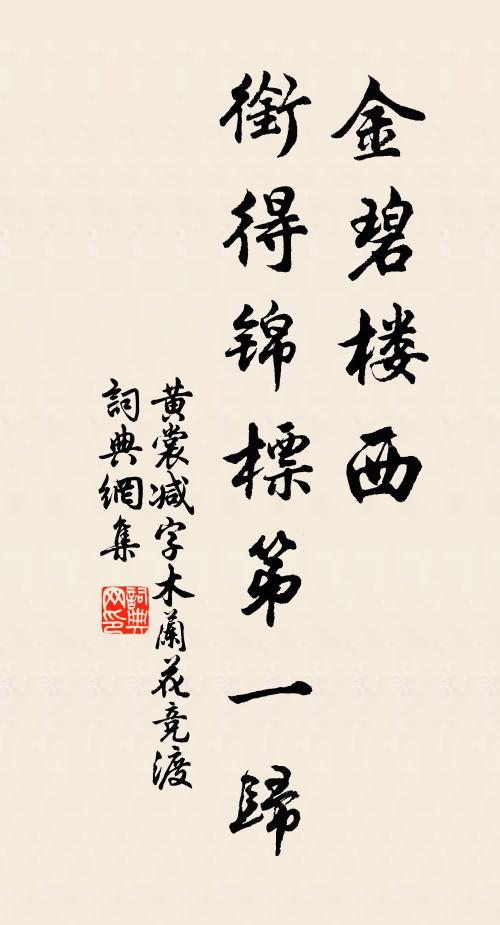 金碧楼西
銜得锦標第一歸
黄裳减字木蘭花竞渡
詞典網集
詞典网印